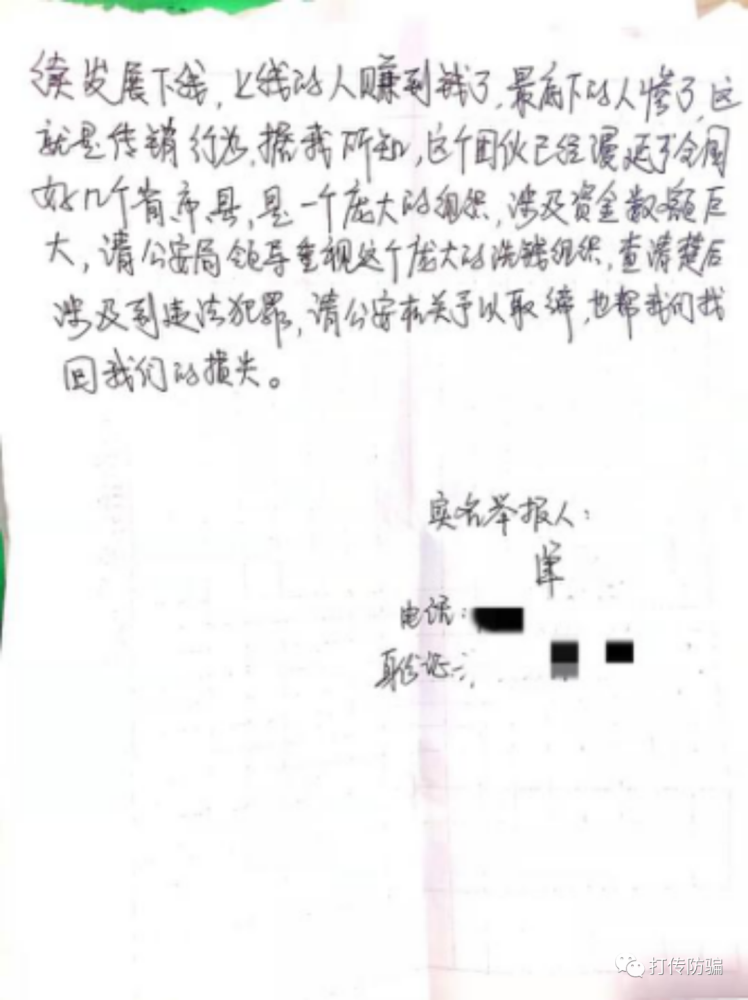 续发展下线,上线的人赚到钱了,最底下的人惨了,这
就是传销行为,据我所知,这个团伙已经漫延了全国
好几个省市县,是一个庞大的组织,涉及资金数额巨
大,请公安局领导重视这个庞大的洗钱组织,查清楚后
涉及到违法犯罪,请公安机关予以取缔,也帮我们找
回我们的损失。
实名举报人:
军
电话:
身份证:
打传防骗